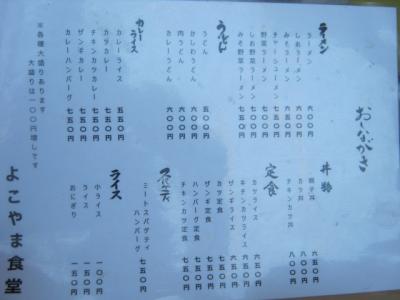 おしながき
ラーメン
ラーメン 六〇〇円
しおラーメン 六〇〇円
みそラーメン 六〇〇円
チャーシューメン 七五〇円
野菜ラーメン 七五〇円
しお野菜ラーメン 七五〇円
みそ野菜ラーメン 七五〇円
うどん
うどん 五〇〇円
かしわうどん 六〇〇円
肉うどん 六〇〇円
カレーうどん 六〇〇円
カレーライス
カレーライス 五五〇円
カツカレー 七五〇円
チキンカツカレー 七五〇円
ザンギカレー 七五〇円
カレーハンバーグ 七五〇円
※各種大盛りあります
大盛りは一〇〇円増しです
丼物
親子丼 六五〇円
カツ丼 八〇〇円
チキンカツ丼 八〇〇円
定食
カツライス 七五〇円
チキンカツライス 六五〇円
ザンギライス 六五〇円
カツ定食
ザンギ定食 七五〇円
ハンバーグ定食 七五〇円
チキンカツ定食 七五〇円
ミートスパゲティ
ハンバーグ 七五〇円
ライス
小ライス 一〇〇円
ライス 一五〇円
おにぎり 一五〇円
よこやま食堂